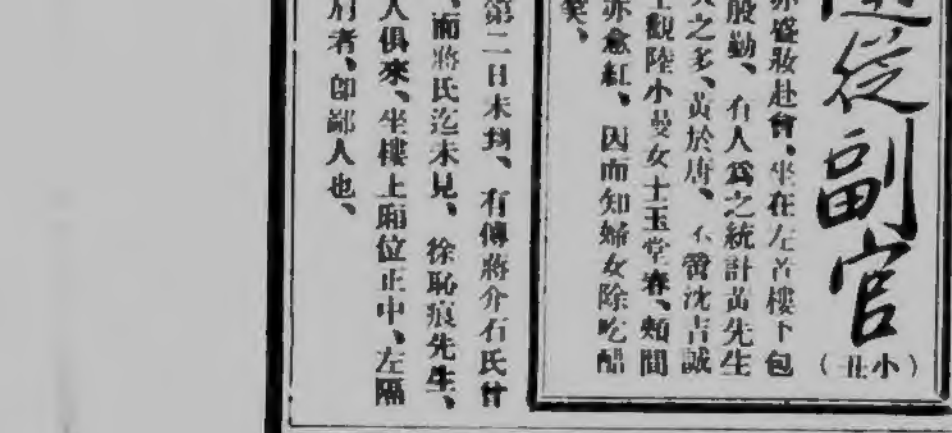 從副官
（小丑）
盛妝赴會、坐在左首樓下包
殷勤、有人爲之統計黃先生
之多、黃於唐、不啻沈吉誠
觀陸小曼女士玉堂春、頰間
亦愈紅、因而知婦女除吃醋
笑、
第二日未到、有傳蔣介石氏曾
、而蔣氏迄未見、徐恥痕先生、
人俱來、坐樓上廂位正中、左隔
肩者、卽鄙人也、